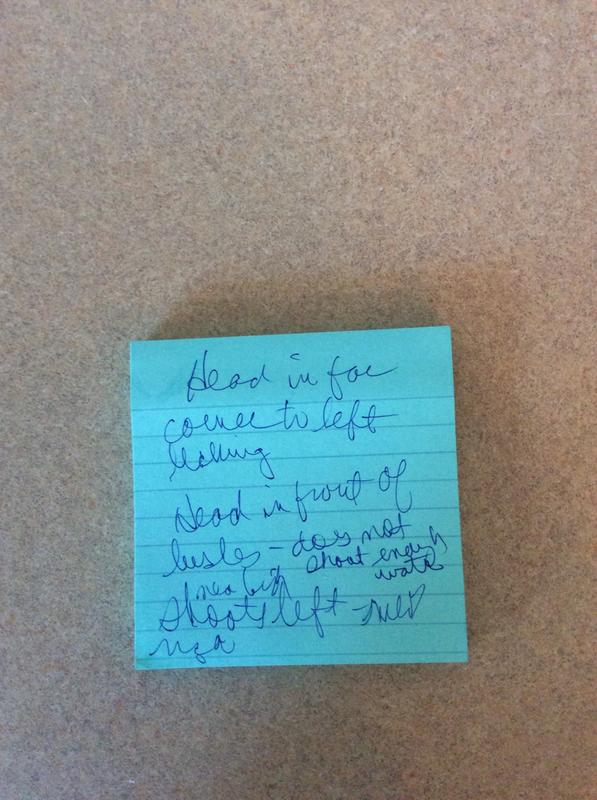 Head in far
corner to left
leaking
Head in front of
bushes - does not
shoot enough
water
shoots left